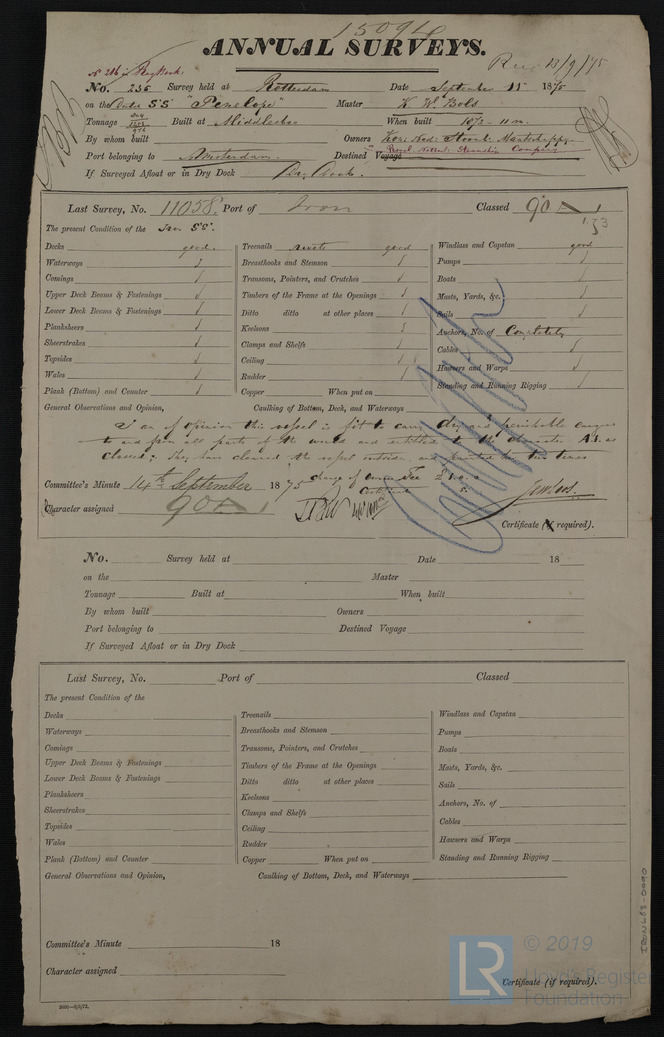 15094
ANNUAL SURVEYS.
Rec 13/9/75
No. 236 Survey held at Rotterdam Date September 11 1875
on the SS "Penelope" Master K. W. Bols
Tonnage Built at Middlesbro When built 1872 - 11 m.
By whom built Owners
Port belonging to Amsterdam Destined Voyage
If Surveyed Afloat or in Dry Dock Dry Dock.
Last Survey, No. 11058. Port of Iron Classed 90 A 1
The present Condition of the Iron SS.
Decks good. Treenails rivets good Windlass and Capstan good
Waterways Breasthooks and Stemson Pumps
Comings Transoms, Pointers, and Crutches Boats
Upper Deck Beams & Fastenings Timbers of the Frame at the Openings Masts, Yards, &c.
Lower Deck Beams & Fastenings Ditto ditto at other places Sails
Planksheers Keelsons Anchors, No. of Completely
Sheerstrakes Clamps and Shelfs Cables
Topsides Ceiling Hawsers and Warps
Wales Rudder Standing and Running Rigging
Plank (Bottom) and Counter Copper When put on
General Observations and Opinion, Caulking of Bottom, Deck, and Waterways
I am of opinion this vessel is fit to carry dry and perishable cargoes
to and from all parts of the world and entitled to the character A1. as
classed; They have cleaned the vessel outside and painted her two times
Committee's Minute 14th September 1875
Character assigned 90 A 1
Certificate (if required).
No. Survey held at Date 18
on the Master
Tonnage Built at When built
By whom built Owners
Port belonging to Destined Voyage
If Surveyed Afloat or in Dry Dock
Last Survey, No. Port of Classed
The present Condition of the
Decks Treenails Windlass and Capstan
Waterways Breasthooks and Stemson Pumps
Comings Transoms, Pointers, and Crutches Boats
Upper Deck Beams & Fastenings Timbers of the Frame at the Openings Masts, Yards, &c.
Lower Deck Beams & Fastenings Ditto ditto at other places Sails
Planksheers Keelsons Anchors, No. of
Sheerstrakes Clamps and Shelfs Cables
Topsides Ceiling Hawsers and Warps
Wales Rudder Standing and Running Rigging
Plank (Bottom) and Counter Copper When put on
General Observations and Opinion, Caulking of Bottom, Deck, and Waterways
Committee's Minute 18
Character assigned
Certificate (if required).
IRON663-0090
LR © 2019
Lloyd's Register
Foundation